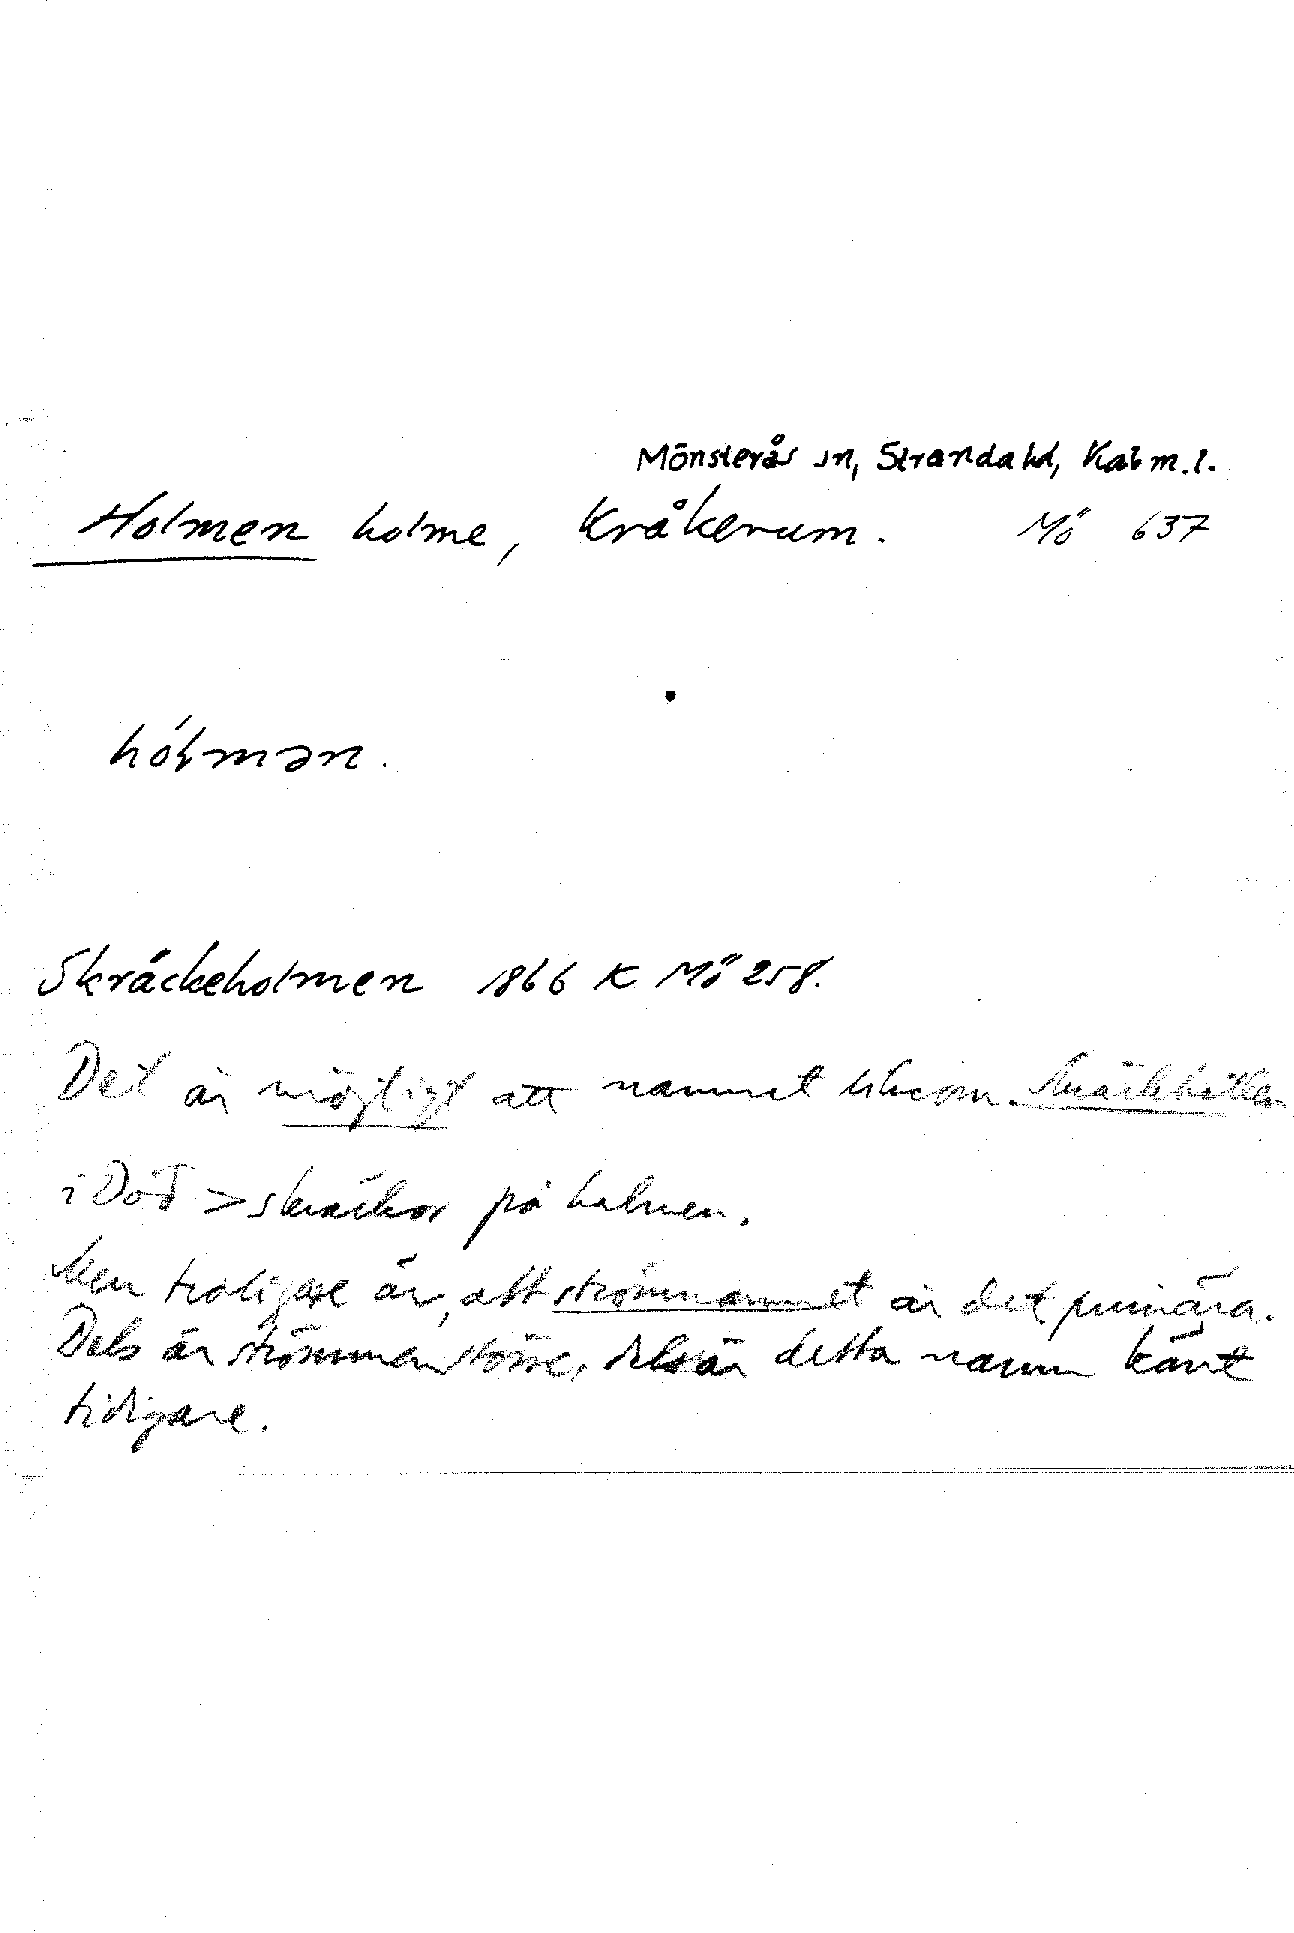 Mönsterås sn, Stranda hd, Kalm. l.
Holmen holme, Kråkerum. Mö 637
hóɫmən.
Skräckeholmen 1866 K Mö 258.
Det är möjligt att namnet liksom Skräckhällan
i Död > skräckor på holmen.
Men troligare är, att strömnamnet är det primära.
Dels är strömmen större, dels är detta namn känt
tidigare.